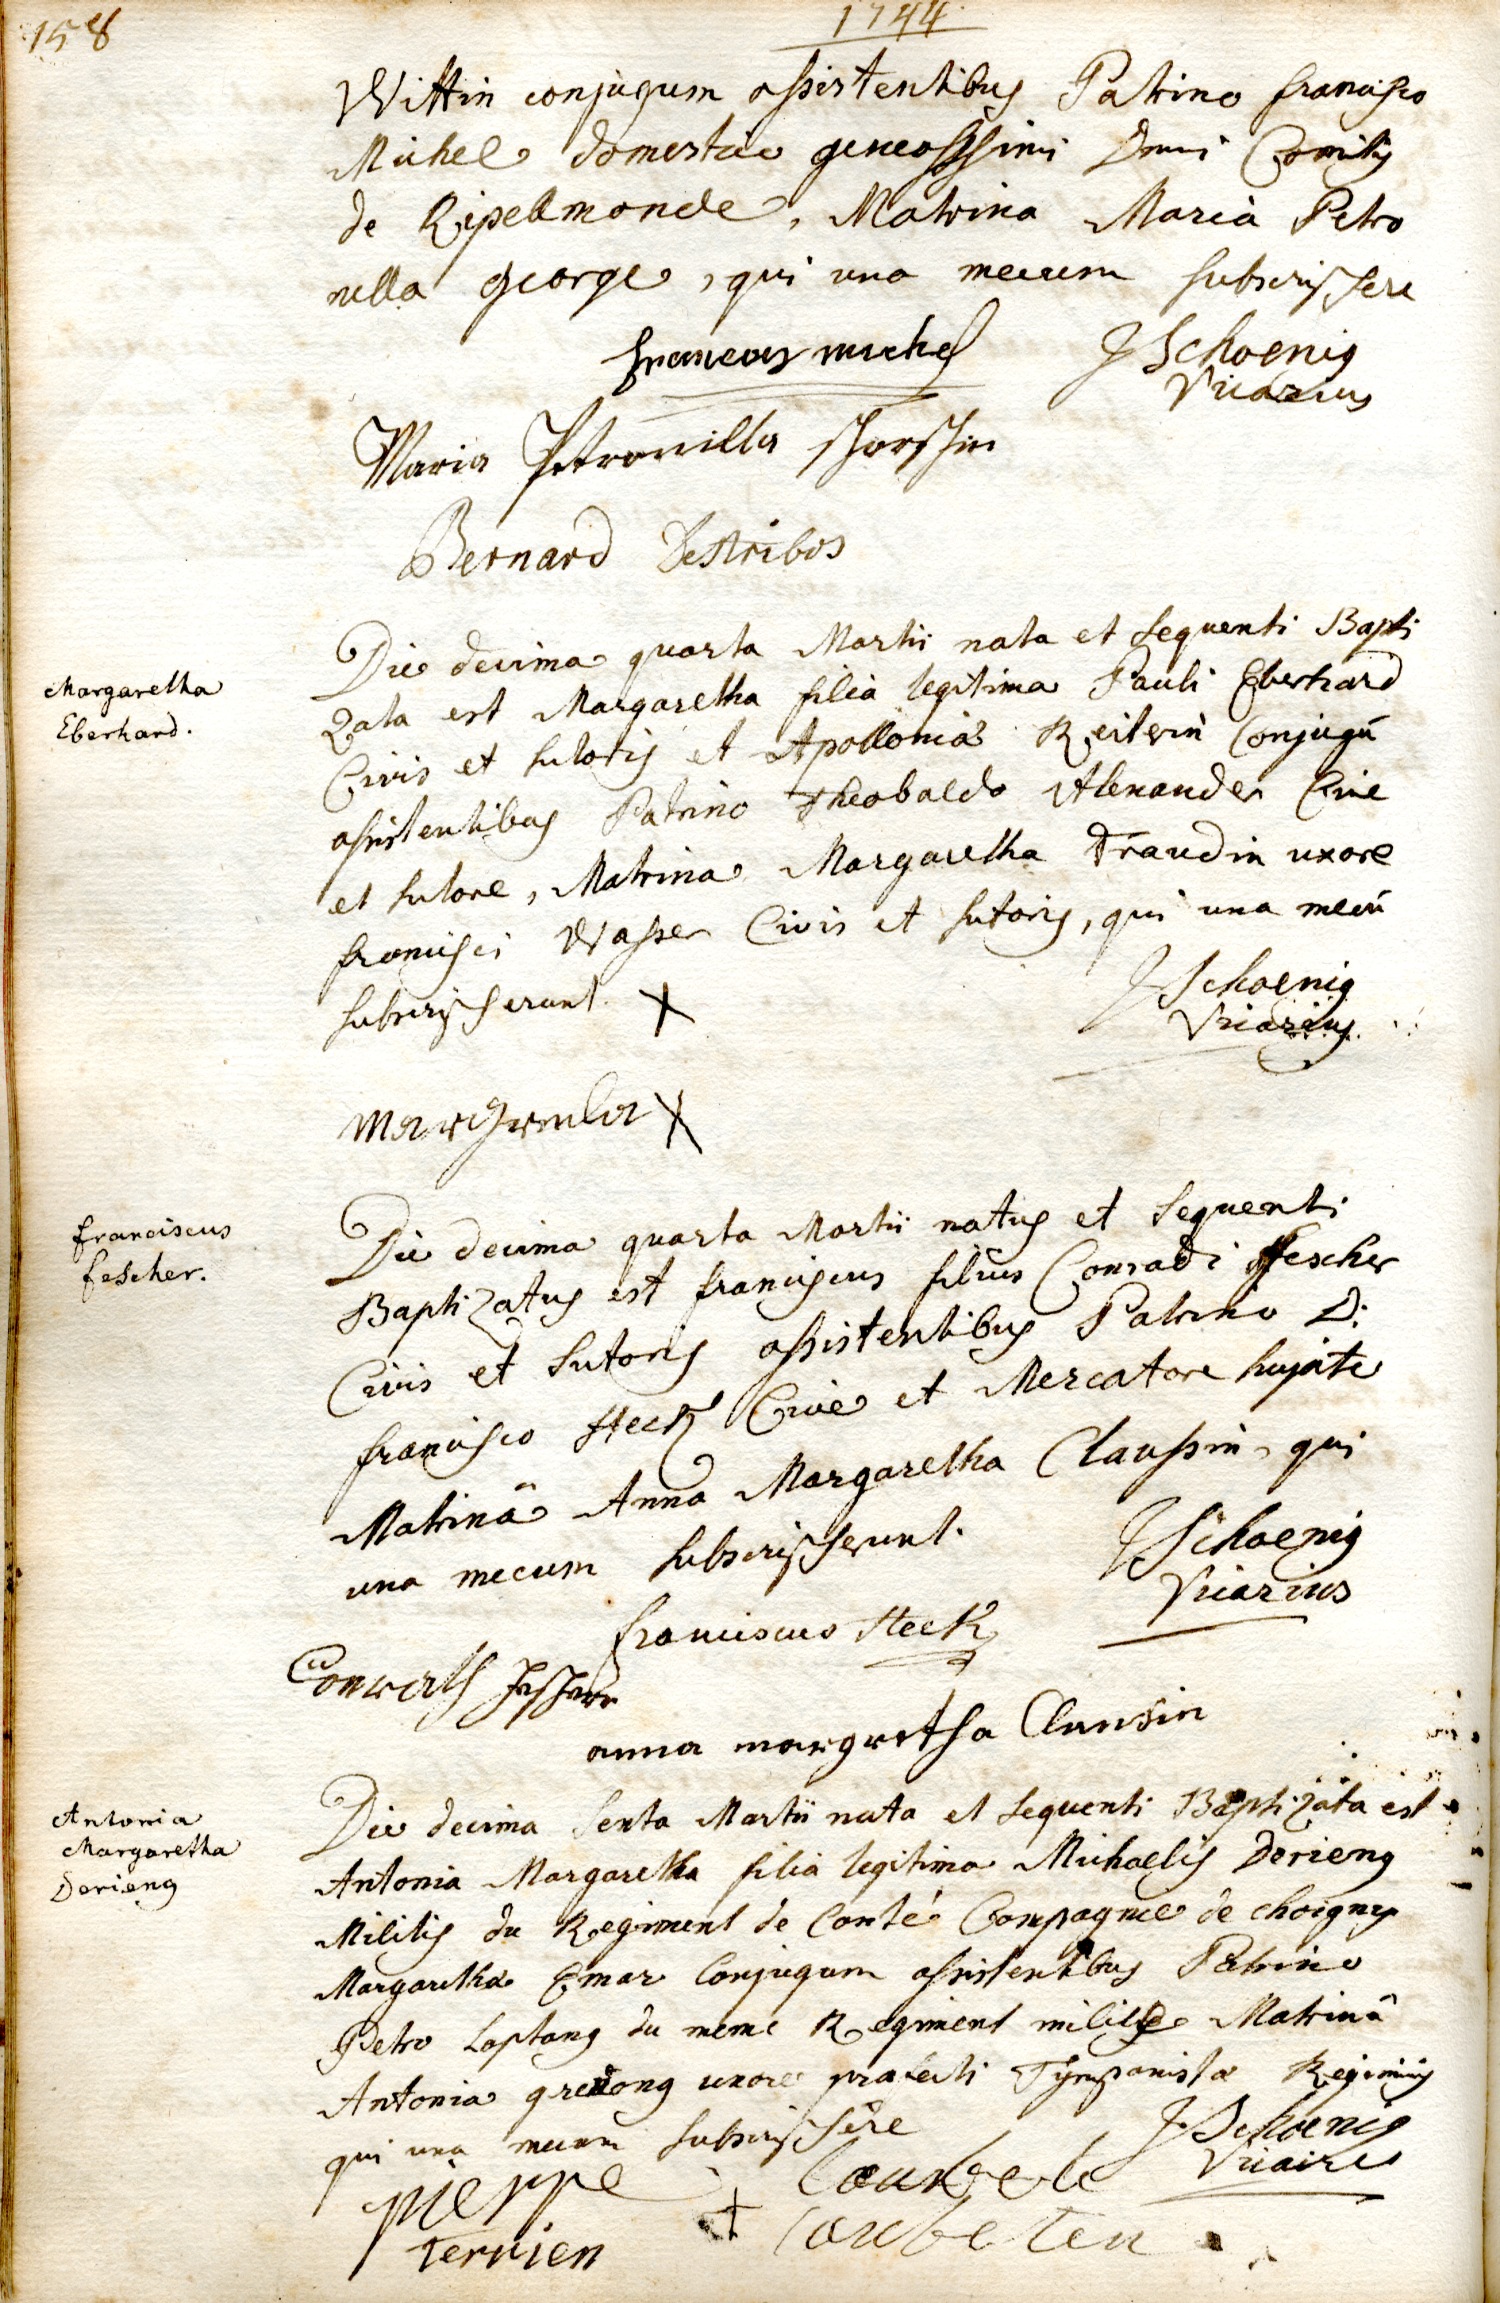 158
1744
Wittin conjugum assistentibus Patrino francisco
Michel domestico generosissimi Dnni Comitis
de Ripellmonde, Matrina Maria Petro
nella george, qui una mecum subscripsere
francois michel J Schoenig
Vicarius
Maria Petronilla
Bernard Destribos
Margaretha
Eberhard.
Die decima quarta Martii nata et sequenti Bapti
zata est Margaretha filia legitima Pauli Eberhard
Civis et sutoris et Apolloniæ Reiterin Conjugū
assistentibus Patrino Theobaldo Alexander Cive
et sutore, Matrina Margaretha Traudin uxore
francisci Wasser Civis et sutoris, qui una mecū
subscripserunt. X J Schoenig
Vicarius
X
franciscus
fescher.
Die decima quarta Martii natus et sequenti
Baptizatus est franciscus filius Conradi fescher
Civis et sutoris assistentibus Patrino D:
francisco Heck Cive et Mercatore hujate
Matrinâ Anna Margaretha Claussin, qui
una mecum subscripserunt. J Schoenig
Vicarius
franciscus Heck
Conrath
anna margretha Clausin
Antonia
Margaretha
Derieng
Die decima sexta Martii nata et sequenti Baptizata est
Antonia Margaretha filia legitima Michaelis Derieng
Militis du Regiment de Conté Compagnie de choigny
Margaretha Emar Conjugum assistentibus Patrino
Petro Laptang du meme Regiment milite Matrinâ
Antonia uxore præfecti Tympanistæ Regiminis
qui una mecum subscripsere J. Schoenig
Vicaire
pierre
terrien
+